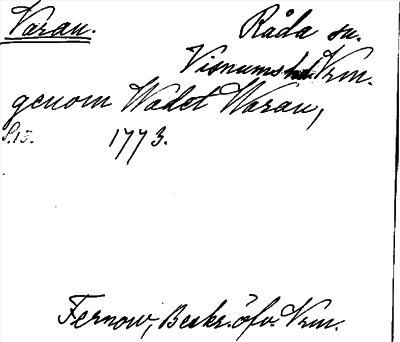 Varan. Råda sn.
Visnums hd. Vrm.
genom Wadet Waran,
S.15. 1773.
Fernow, Beskr. öfv. Vrm.